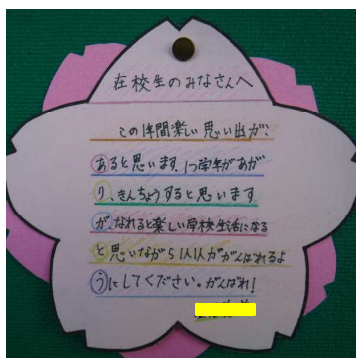 在校生のみなさんへ
この1年間楽しい思い出が、
あると思います。1つ学年があが
り、きんちょうすると思います
が、なれると楽しい学校生活になる
と思いながら1人1人ががんばれるよ
うにしてください。がんばれ!